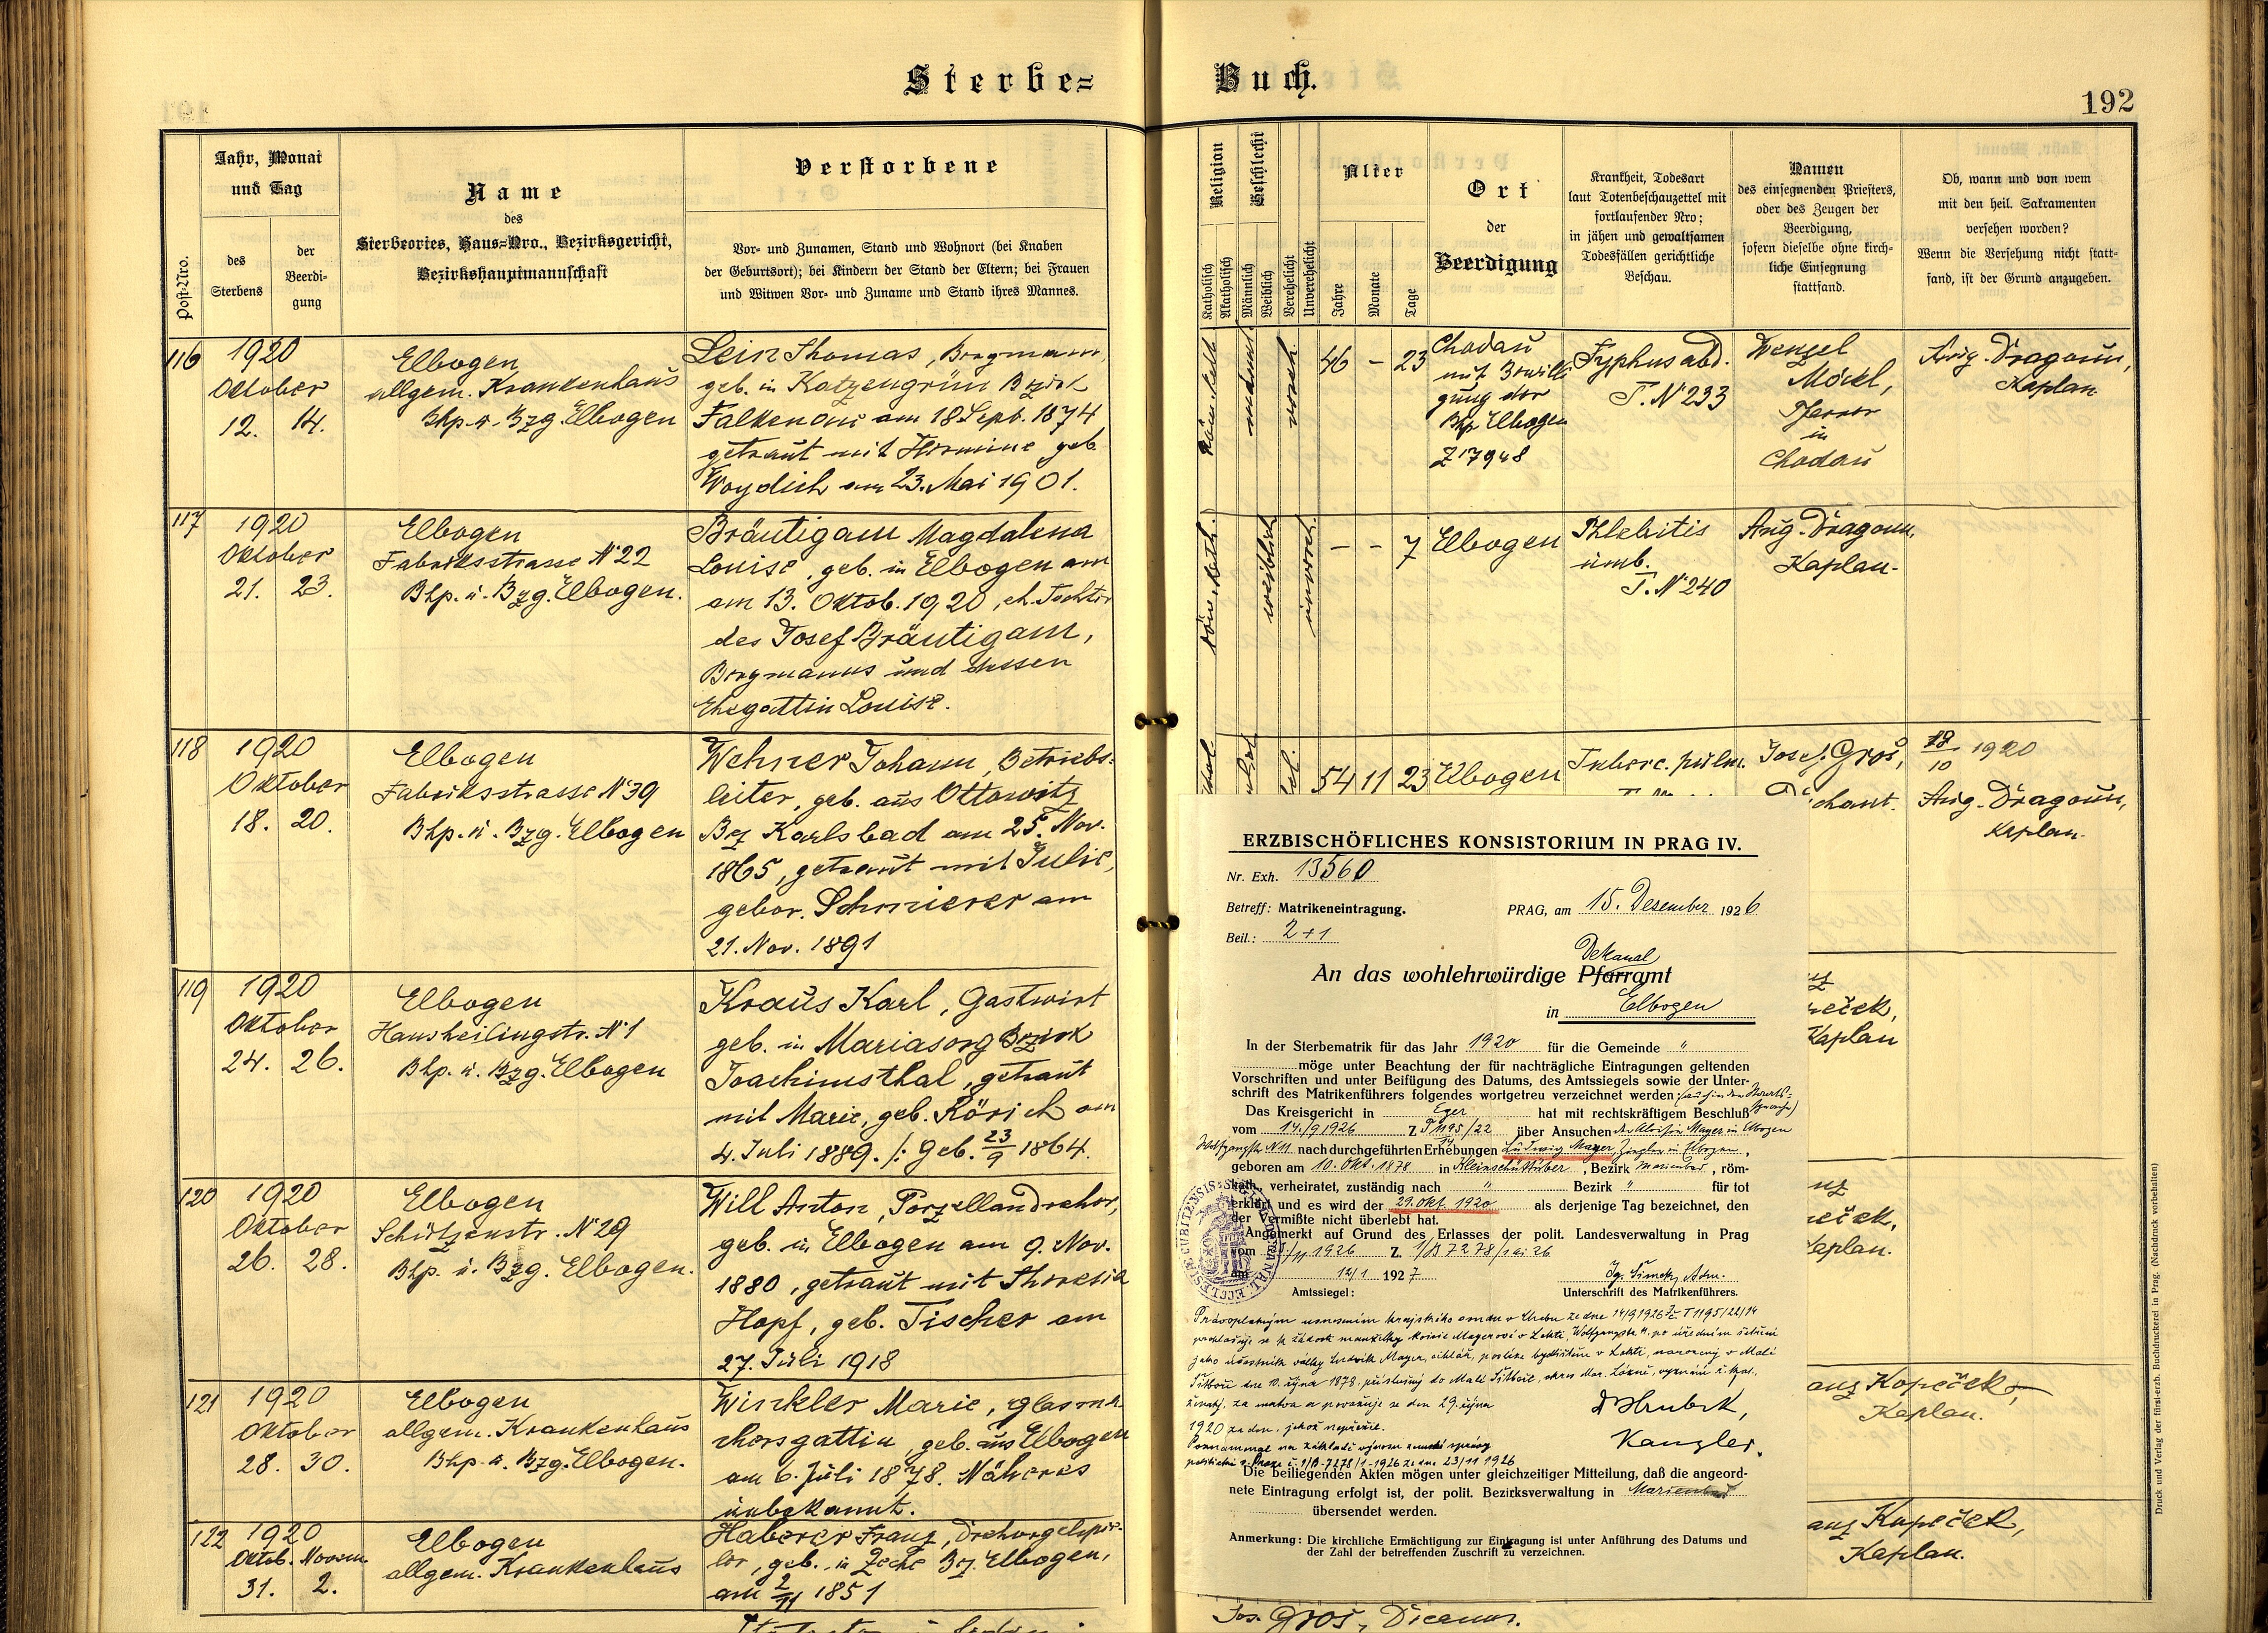 Sterbe=
Buch.
192
Post-Nro.
Jahr, Monat
und Tag
des
Sterbens
der
Beerdi-
gung
Name
des
Sterbeortes, Haus=Nro., Bezirksgericht,
Bezirkshauptmannschaft
Verstorbene
Vor- und Zunamen, Stand und Wohnort (bei Knaben
der Geburtsort); bei Kindern der Stand der Eltern; bei Frauen
und Witwen Vor- und Zuname und Stand ihres Mannes.
Religion
Katholisch
Akatholisch
Geschlecht
Männlich
Weiblich
Verehelicht
Unverehelicht
Alter
Jahre
Monate
Tage
Ort
der
Beerdigung
Krankheit, Todesart
laut Totenbeschauzettel mit
fortlaufender Nro;
in jähen und gewaltsamen
Todesfällen gerichtliche
Beschau.
Namen
des einsegnenden Priesters,
oder des Zeugen der
Beerdigung,
sofern dieselbe ohne kirch-
liche Einsegnung
stattfand.
Ob, wann und von wem
mit den heil. Sakramenten
versehen worden?
Wenn die Versehung nicht statt-
fand, ist der Grund anzugeben.
116
1920
Oktober
12. 14.
Elbogen
allgem. Krankenhaus
Bhp. u. Bzg. Elbogen
Lein Thomas, Bergmann,
geb. in Katzengrün Bezirk
Falkenau am 18 Sept. 1874
getraut mit Hermine geb.
Woydich am 23. Mai 1901.
röm. kath.
männl.
vereh.
46 – 23
Chodau
mit Bewilli
gung der
Bhp Elbogen
Z 17948
Typhus abd.
T. Nº 233
Wenzel
Möckl,
Pfarrer
in
Chodau
Aug. Dragoun,
Kaplan
117
1920
Oktober
21. 23.
Elbogen
Fabriksstrasse Nº 22
Bhp. u. Bzg. Elbogen.
Bräutigam Magdalena
Louise, geb. in Elbogen am
am 13. Oktob. 1920, eh. Tochter
des Josef Bräutigam,
Bergmanns und dessen
Ehegattin Louise.
röm. kath.
weiblich
unvereh.
– – 7
Elbogen
Phlebitis
umb.
T. Nº 240
Aug. Dragoun,
Kaplan.
118
1920
Oktober
18. 20.
Elbogen
Fabriksstrasse Nº 39
Bhp. u. Bzg. Elbogen
Wehner Johann, Betriebs=
leiter, geb. aus Ottowitz
Bz Karlsbad am 25. Nov.
1865, getraut mit Julie,
gebor. Schmierer am
21. Nov. 1891
54 11 23
Elbogen
Tuberc. pulm.
Josef Groš,
Dechant.
18/10 1920
Aug. Dragoun,
Kaplan.
119
1920
Oktober
24. 26.
Elbogen
Hansheilingstr. Nº 1
Bhp. u. Bzg. Elbogen
Kraus Karl, Gastwirt
geb. in Mariasorg Bezirk
Joachimsthal, getraut
mit Marie, geb. Rösich am
4. Juli 1889. /: Geb. 23/9 1864.
eček,
Kaplan
120
1920
Oktober
26. 28.
Elbogen
Schützenstr. Nº 29
Bhp. u. Bzg. Elbogen.
Will Anton, Porzellandreher,
geb. in Elbogen am 9. Nov.
1880, getraut mit Theresia
Hopf, geb. Tischer am
27. Juli 1918
eček,
Kaplan.
121
1920
Oktober
28. 30.
Elbogen
allgem. Krankenhaus
Bhp. u. Bzg. Elbogen.
Winkler Marie, Glasma
chersgattin, geb. aus Elbogen
am 6. Juli 1878. Näheres
unbekannt.
anz Kopeček,
Kaplan.
122
1920
Oktob. Novem.
31. 2.
Elbogen
allgem. Krankenhaus
Haberer Franz, Drehorgelspie-
ler, geb. in Zeche Bz. Elbogen,
am 2/11 1851
anz Kopeček,
Kaplan.
ERZBISCHÖFLICHES KONSISTORIUM IN PRAG IV.
Nr. Exh. 13560
Betreff: Matrikeneintragung.
PRAG, am 15. Dezember 1926
Beil.: 2+1
Dekanal
An das wohlehrwürdige Pfarramt
in Elbogen
In der Sterbematrik für das Jahr 1920 für die Gemeinde "
möge unter Beachtung der für nachträgliche Eintragungen geltenden
Vorschriften und unter Beifügung des Datums, des Amtssiegels sowie der Unter-
schrift des Matrikenführers folgendes wortgetreu verzeichnet werden: (auch in der Staats-
sprache)
Das Kreisgericht in Eger hat mit rechtskräftigem Beschluß
vom 14./9 1926 Z T 1195/22/14 über Ansuchen der Aloisia Mayer in Elbogen
Wolfgangstr. N 11 nach durchgeführten Erhebungen Ludwig Mayer, Ziegler in Elbogen,
geboren am 10. Okt. 1878 in Kleinschüttüber, Bezirk Marienbad, röm-
kath., verheiratet, zuständig nach " Bezirk " für tot
erklärt und es wird der 29. Okt. 1920 als derjenige Tag bezeichnet, den
der Vermißte nicht überlebt hat.
Angemerkt auf Grund des Erlasses der polit. Landesverwaltung in Prag
vom /11 1926 Z. 1/B 7278/1 ai 26
am 12/1 1927
Ig. Šimek, Adm.
Amtssiegel:
Unterschrift des Matrikenführers.
Právoplatným usnesením krajského soudu v Chebu ze dne 14/9 1926 Z T 1195/22/14
prohlašuje se k žádosti manželky Aloisie Mayerové v Lokti, Wolfgangstr. 11, po úředním šetření
jako účastník války Ludvík Mayer, cihlář, posléze bydlištěm v Lokti, narozený v Malé
Šitboři dne 10. října 1878, příslušný do Malé Šitboře, okres Mar. Lázně, vyznání ř. kat.,
ženatý, za mrtva a považuje se den 29. října
1920 za den, jehož nepřežil.
Poznamenal na základě výnosu zemské správy
politické v Praze č. 1/B-7278/1-1926 ze dne 23/11 1926
Dr Hrubek,
Kanzler.
Die beiliegenden Akten mögen unter gleichzeitiger Mitteilung, daß die angeord-
nete Eintragung erfolgt ist, der polit. Bezirksverwaltung in Marienbad
übersendet werden.
Anmerkung: Die kirchliche Ermächtigung zur Eintragung ist unter Anführung des Datums und
der Zahl der betreffenden Zuschrift zu verzeichnen.
Jos. Groš, Decanus.
Druck und Verlag der fürst-erzb. Buchdruckerei in Prag. (Nachdruck vorbehalten)